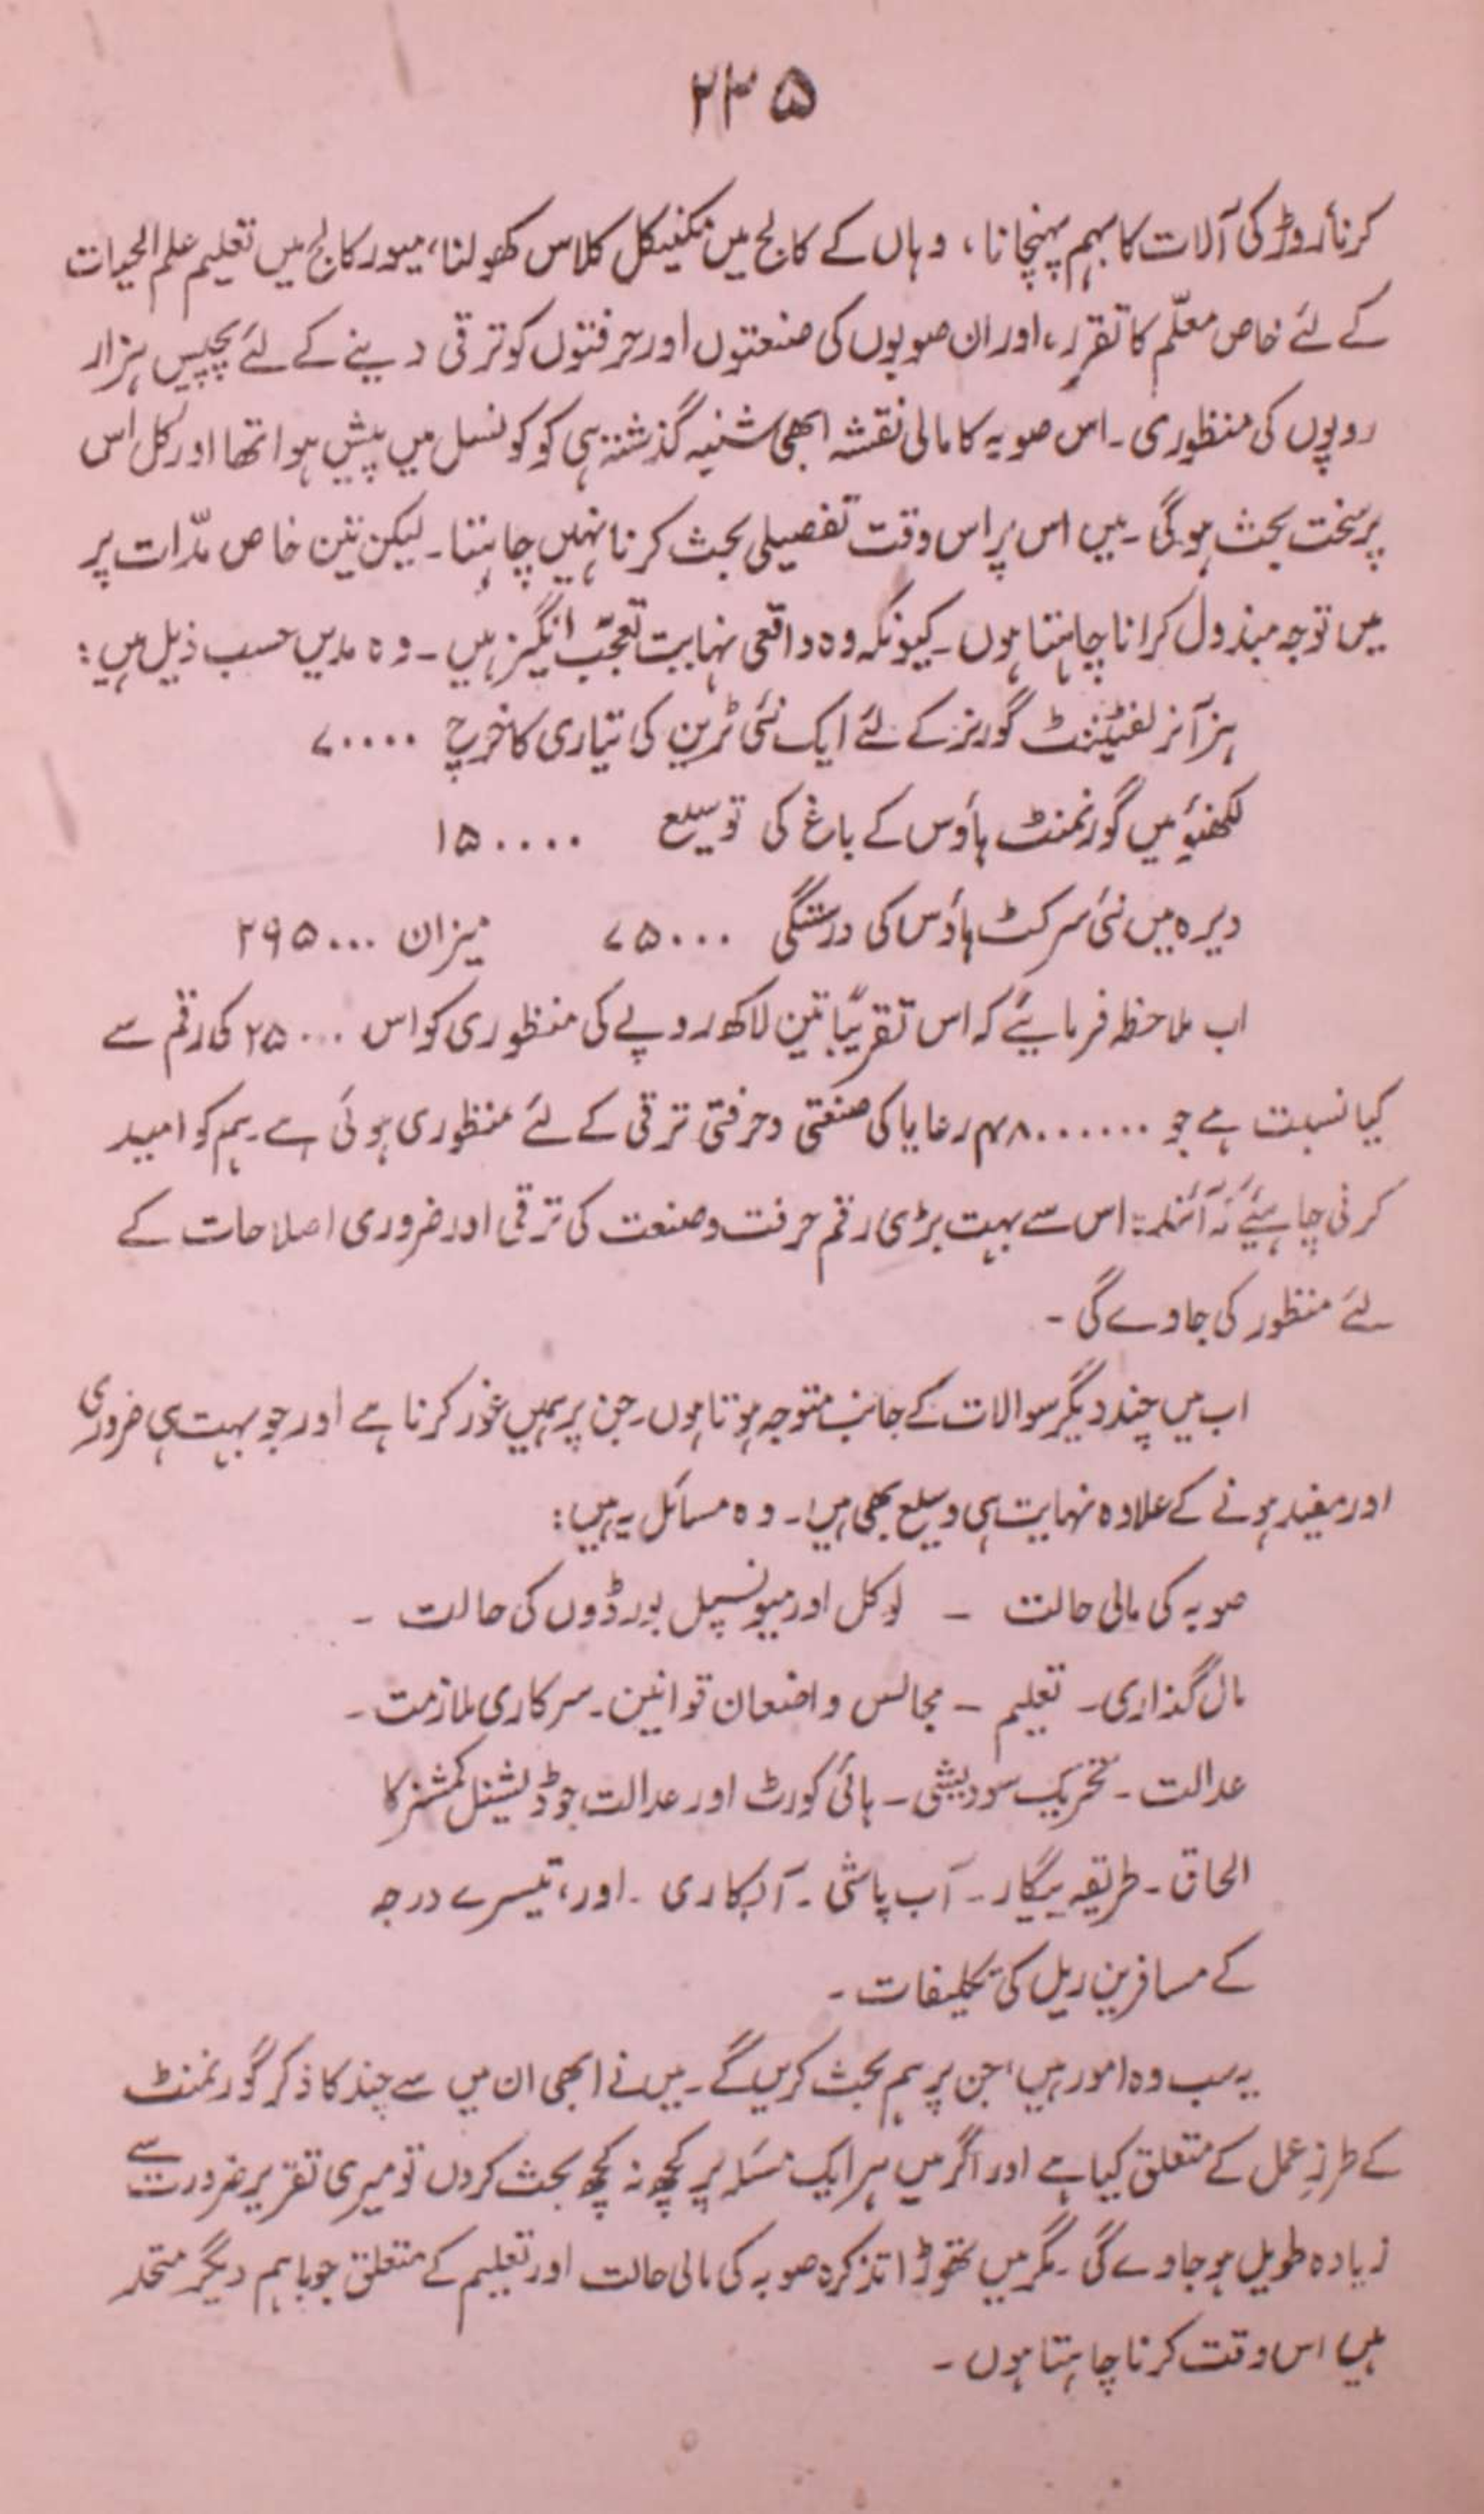 ۲۳۵
کرنا، روڑکی آلات کا بہم پہنچانا، وہاں کے کالج میں ٹکنیکل کلاس کھولنا، میور کالج میں تعلیم علم الحیات
کے لئے خاص معلّم کا تقرر، اور ان صوبوں کی صنعتوں اور حرفتوں کو ترقی دینے کے لئے پچیس ہزار
روپوں کی منظوری۔ اس صوبہ کا مالی نقشہ ابھی شنبہ گذشتہ ہی کو کونسل میں پیش ہوا تھا اور کل اس
پر سخت بحث ہوگی۔ میں اس پر اس وقت تفصیلی بحث کرنا نہیں چاہتا۔ لیکن تین خاص مدّات پر
میں توجہ مبذول کرانا چاہتا ہوں۔ کیونکہ وہ واقعی نہایت تعجّب انگیز ہیں۔ وہ مدیں حسب ذیل ہیں:
ہز آنر لفٹیننٹ گورنر کے لئے ایک نئی ٹرین کی تیاری کا خرچ ۷۰۰۰۰
لکھنؤ میں گورنمنٹ ہاؤس کے باغ کی توسیع ۱۵۰۰۰۰
دیرہ میں نئی سرکٹ ہاؤس کی درستگی ۷۵۰۰۰ میزان ۲۹۵۰۰۰
اب ملاحظہ فرمایئے کہ اس تقریباً تین لاکھ روپے کی منظوری کو اس ۲۵۰۰۰ کی رقم سے
کیا نسبت ہے جو ۴۸۰۰۰۰۰۰ رعایا کی صنعتی و حرفتی ترقی کے لئے منظوری ہوئی ہے۔ ہم کو امید
کرنی چاہئیے کہ آئندہ اس سے بہت بڑی رقم حرفت و صنعت کی ترقی اور ضروری اصلاحات کے
لئے منظور کی جاوے گی۔
اب میں چند دیگر سوالات کے جانب متوجہ ہوتا ہوں۔ جن پر ہمیں غور کرنا ہے اور جو بہت ہی ضروری
اور مفید ہونے کے علاوہ نہایت ہی وسیع بھی ہیں۔ وہ مسائل یہ ہیں:
صوبہ کی مالی حالت ۔ لوکل اور میونسپل بورڈوں کی حالت ۔
مال گذاری۔ تعلیم ۔ مجالس واضعان قوانین۔ سرکاری ملازمت۔
عدالت۔ تحریک سودیشی۔ ہائی کورٹ اور عدالت جوڈیشنل کمشنر کا
الحاق۔ طریقہ بیگار۔ آب پاشی۔ آبکاری۔ اور، تیسرے درجہ
کے مسافرین ریل کی تکلیفات۔
یہ سب وہ امور ہیں، جن پر ہم بحث کریں گے۔ میں نے ابھی ان میں سے چند کا ذکر گورنمنٹ
کے طرزِ عمل کے متعلق کیا ہے اور اگر میں ہر ایک مسئلہ پر کچھ نہ کچھ بحث کروں تو میری تقریر ضرورت سے
زیادہ طویل ہو جاوے گی۔ مگر میں تھوڑا تذکرہ صوبہ کی مالی حالت اور تعلیم کے متعلق جو باہم دیگر متحد
ہیں اس وقت کرنا چاہتا ہوں۔